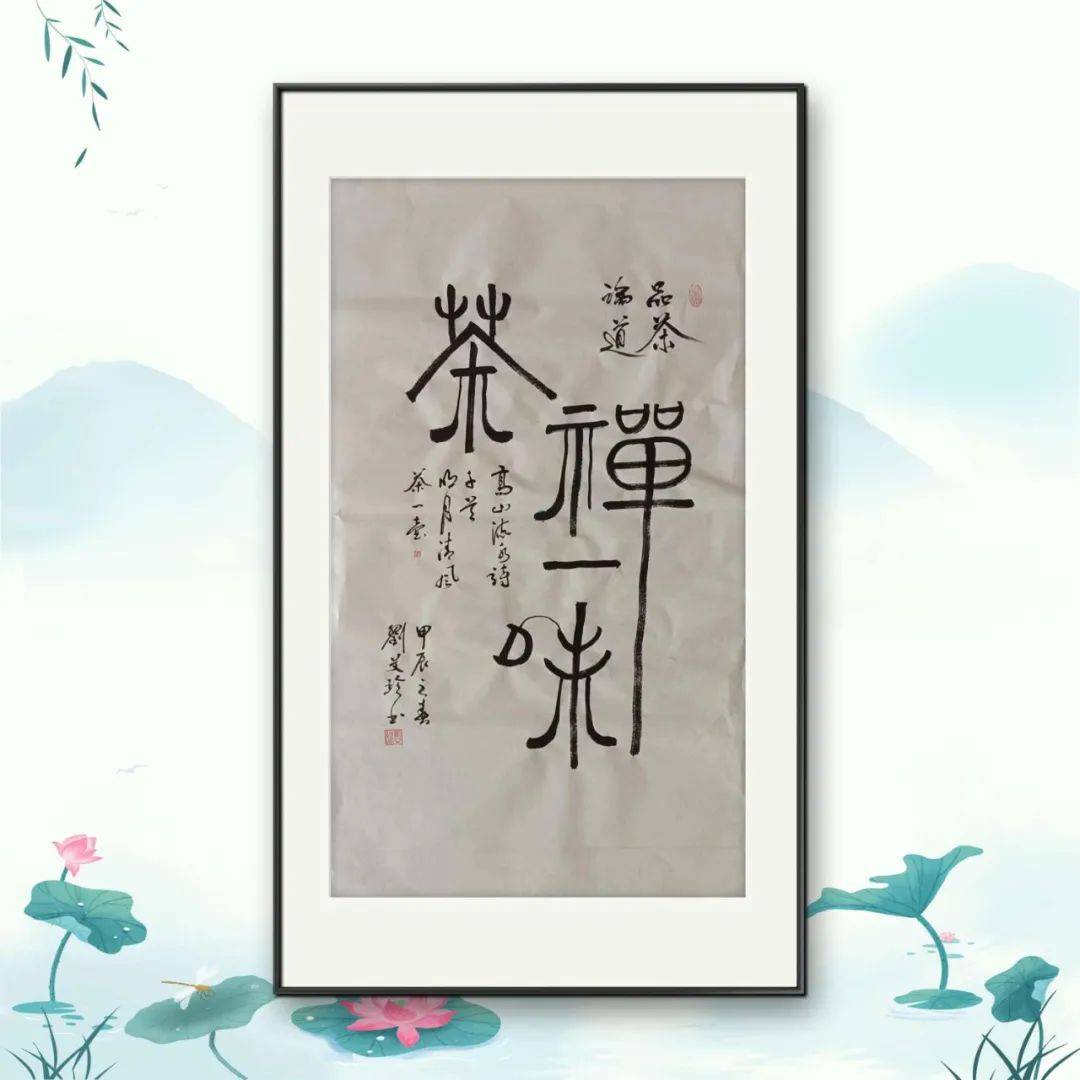 品茶
論道
茶
禪一味
高山流水詩
千首
明月清風
茶一壺
甲辰之春
劉 珍書